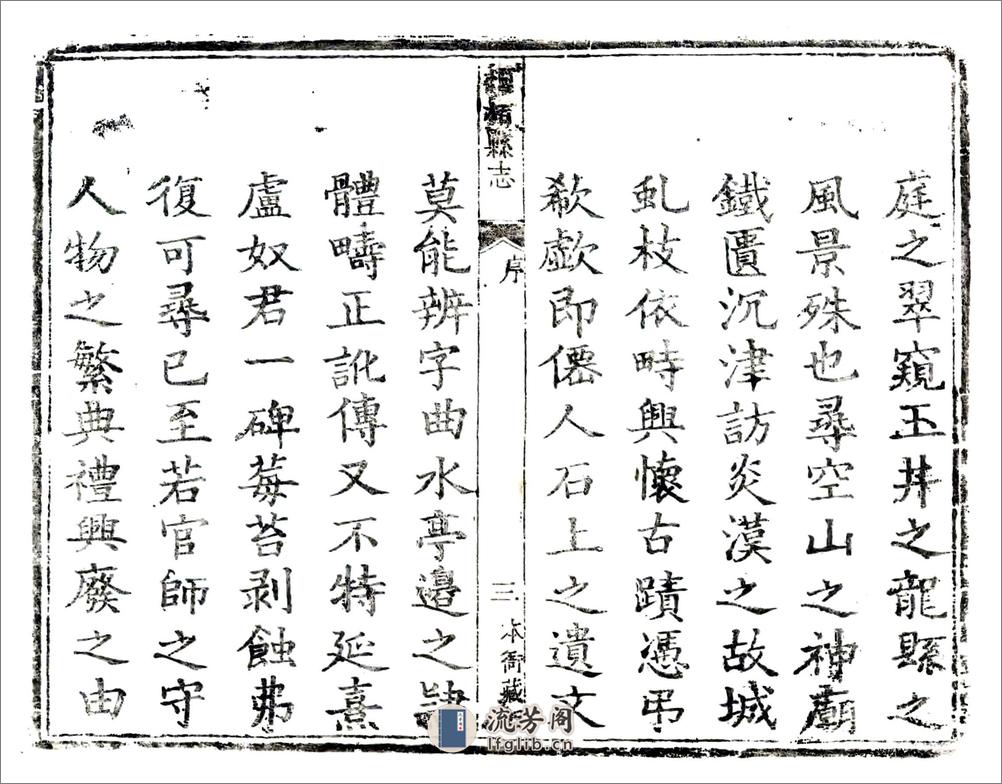 庭之翠窺玉井之龍縣之
風景殊也尋空山之神廟
鐵匱沉津訪炎漢之故城
虬枝依畤興懷古蹟憑弔
欷歔即僊人石上之遺文
縣志
序
三
本衙藏
莫能辨字曲水亭邊之
體疇正訛傳又不特延熹
盧奴君一碑莓苔剥蝕弗
復可尋已至若官師之守
人物之繁典禮興廢之由
流芳阁
lfglib.cn